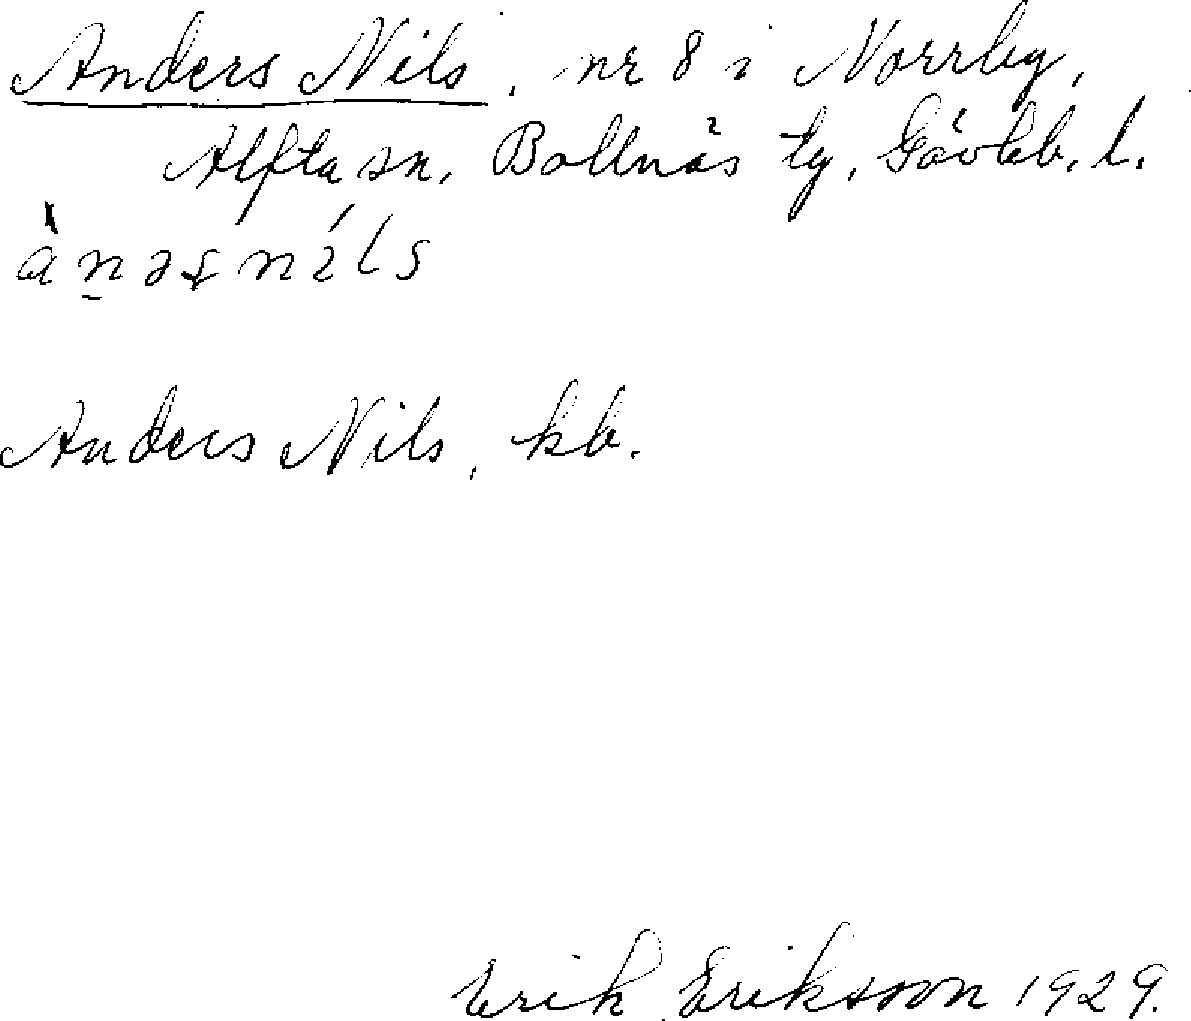 Anders Nils, nr 8 i Norrby,
Alfta sn, Bollnäs tg, Gävleb. l.
ànəʂníls
Anders Nils, kb.
Erik Eriksson 1929.